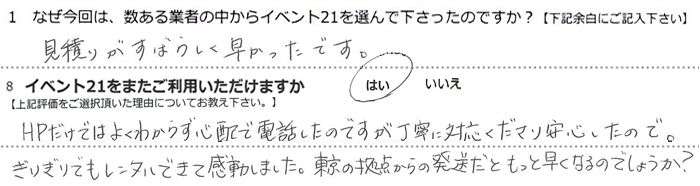 1 なぜ今回は、数ある業者の中からイベント21を選んで下さったのですか？【下記余白にご記入下さい】
見積りがすばらしく早かったです。
8 イベント21をまたご利用いただけますか はい いいえ
【上記評価をご選択頂いた理由についてお教え下さい。】
HPだけではよくわからず心配で電話したのですが丁寧に対応くださり安心したので。
ぎりぎりでもレンタルできて感動しました。東京の拠点からの発送だともっと早くなるのでしょうか？